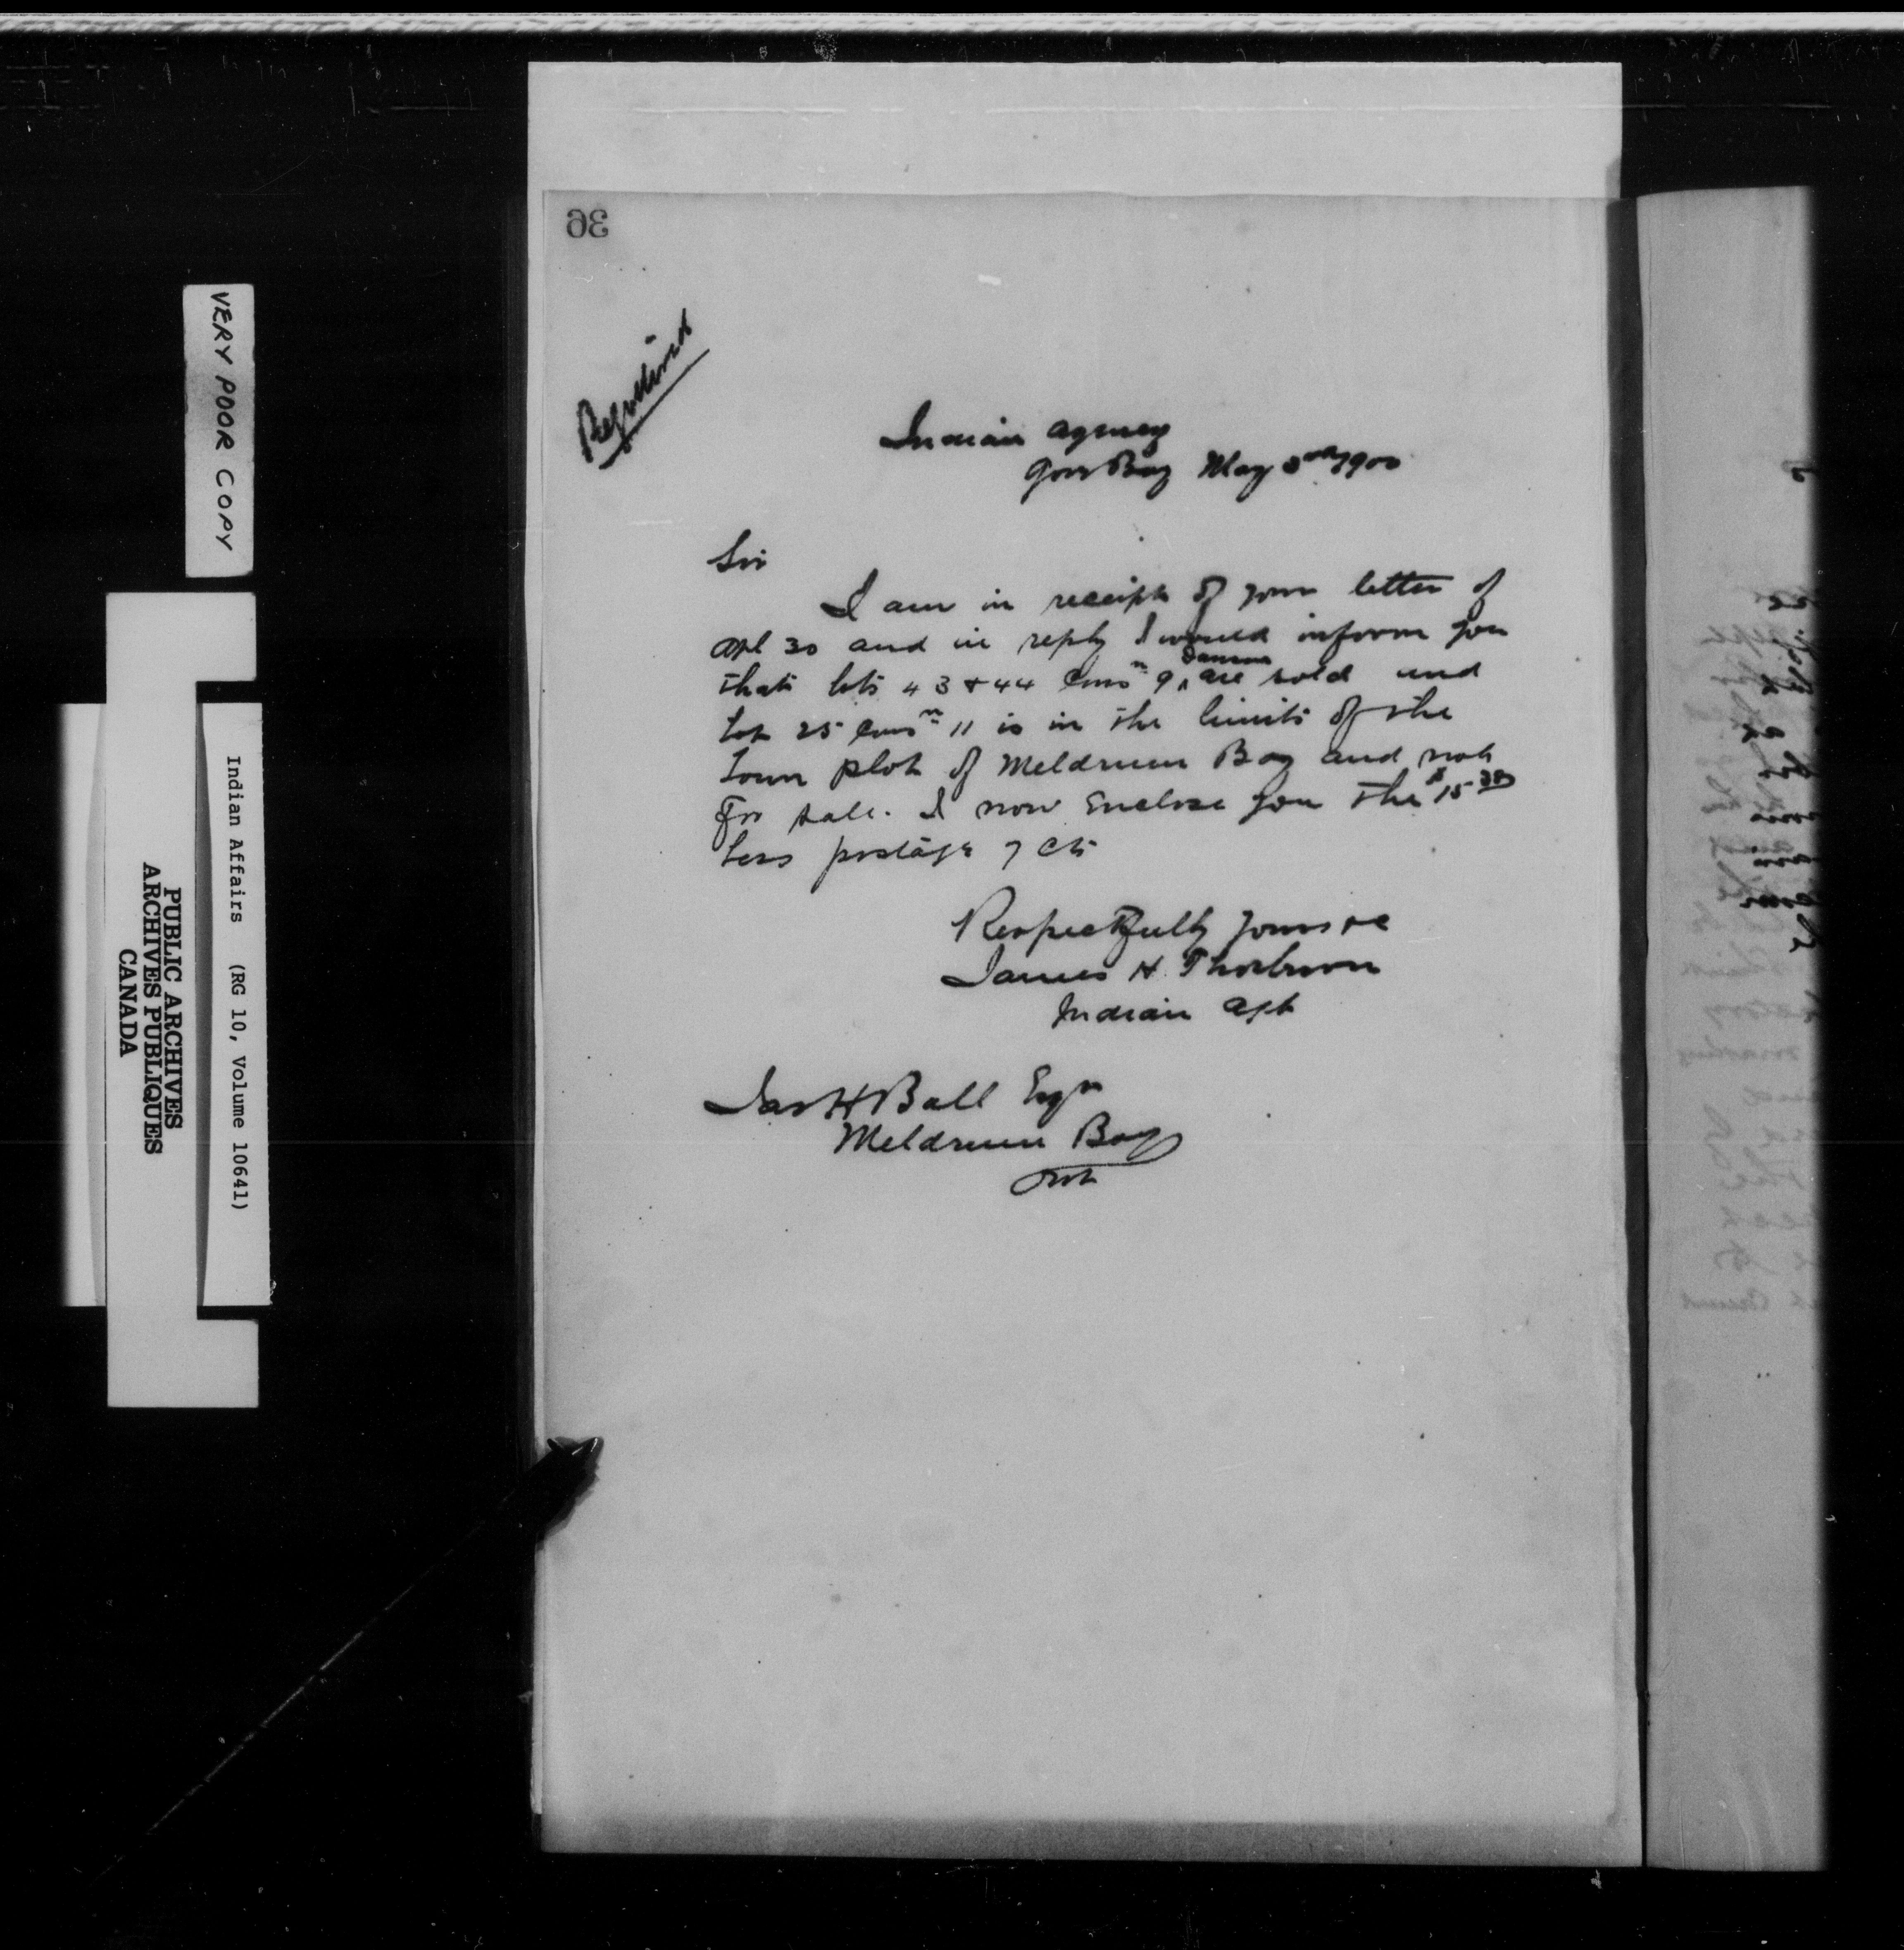 VERY POOR COPY
Indian Affairs (RG 10, Volume 10641)
PUBLIC ARCHIVES
ARCHIVES PUBLIQUES
CANADA
36
Registered
Indian Agency
Gore Bay May 1900
Sir
I am in receipt of your letter of
Apl 30 and in reply I would inform you
that lots 43 & 44 Consn 9 Dawson are sold and
Lot 25 Consn 11 is in the limits of the
Town plot of Meldrum Bay and not
For sale. I now Enclose you the $15
Less postage 7 cts
Respectfully yours &c
James H. Thorburn
Indian Agt
Jas H Ball Esqr
Meldrum Bay
Ont